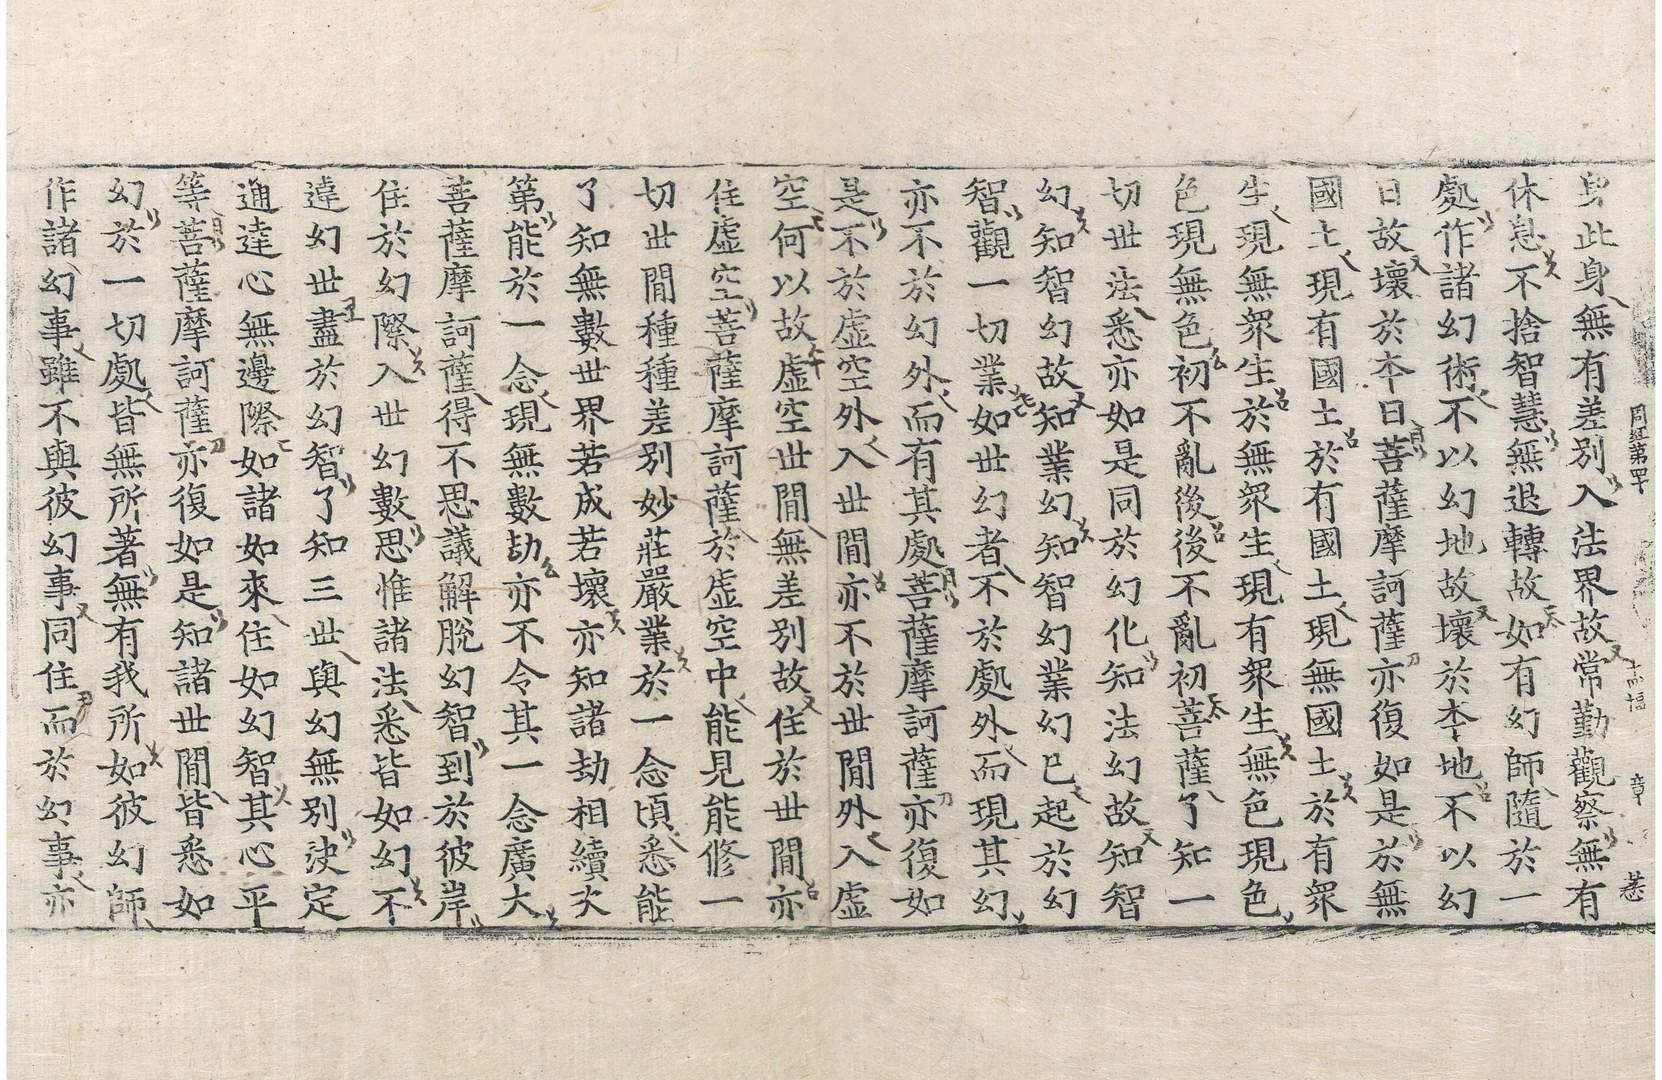 身此身無有差別入法界故常勤觀察無有
休息不捨智慧無退轉故如有幻師隨於一
處作諸幻術不以幻地故壞於本地不以幻
日故壞於本日菩薩摩訶薩亦復如是於無
國土現有國土於有國土現無國土於有衆
生現無衆生於無衆生現有衆生無色現色
色現無色初不亂後後不亂初菩薩了知一
切世法悉亦如是同於幻化知法幻故知智
幻知智幻故知業幻知智幻業幻已起於幻
智觀一切業如世幻者不於處外而現其幻
亦不於幻外而有其處菩薩摩訶薩亦復如
是不於虛空外入世間亦不於世間外入虛
空何以故虛空世間無差別故住於世間亦
住虛空菩薩摩訶薩於虛空中能見能修一
切世間種種差別妙莊嚴業於一念頃悉能
了知無數世界若成若壞亦知諸劫相續次
第能於一念現無數劫亦不令其一念廣大
菩薩摩訶薩得不思議解脫幻智到於彼岸
住於幻際入世幻數思惟諸法悉皆如幻不
違幻世盡於幻智了知三世與幻無別決定
通達心無邊際如諸如來住如幻智其心平
等菩薩摩訶薩亦復如是知諸世間皆悉如
幻於一切處皆無所著無有我所如彼幻師
作諸幻事雖不與彼幻事同住而於幻事亦